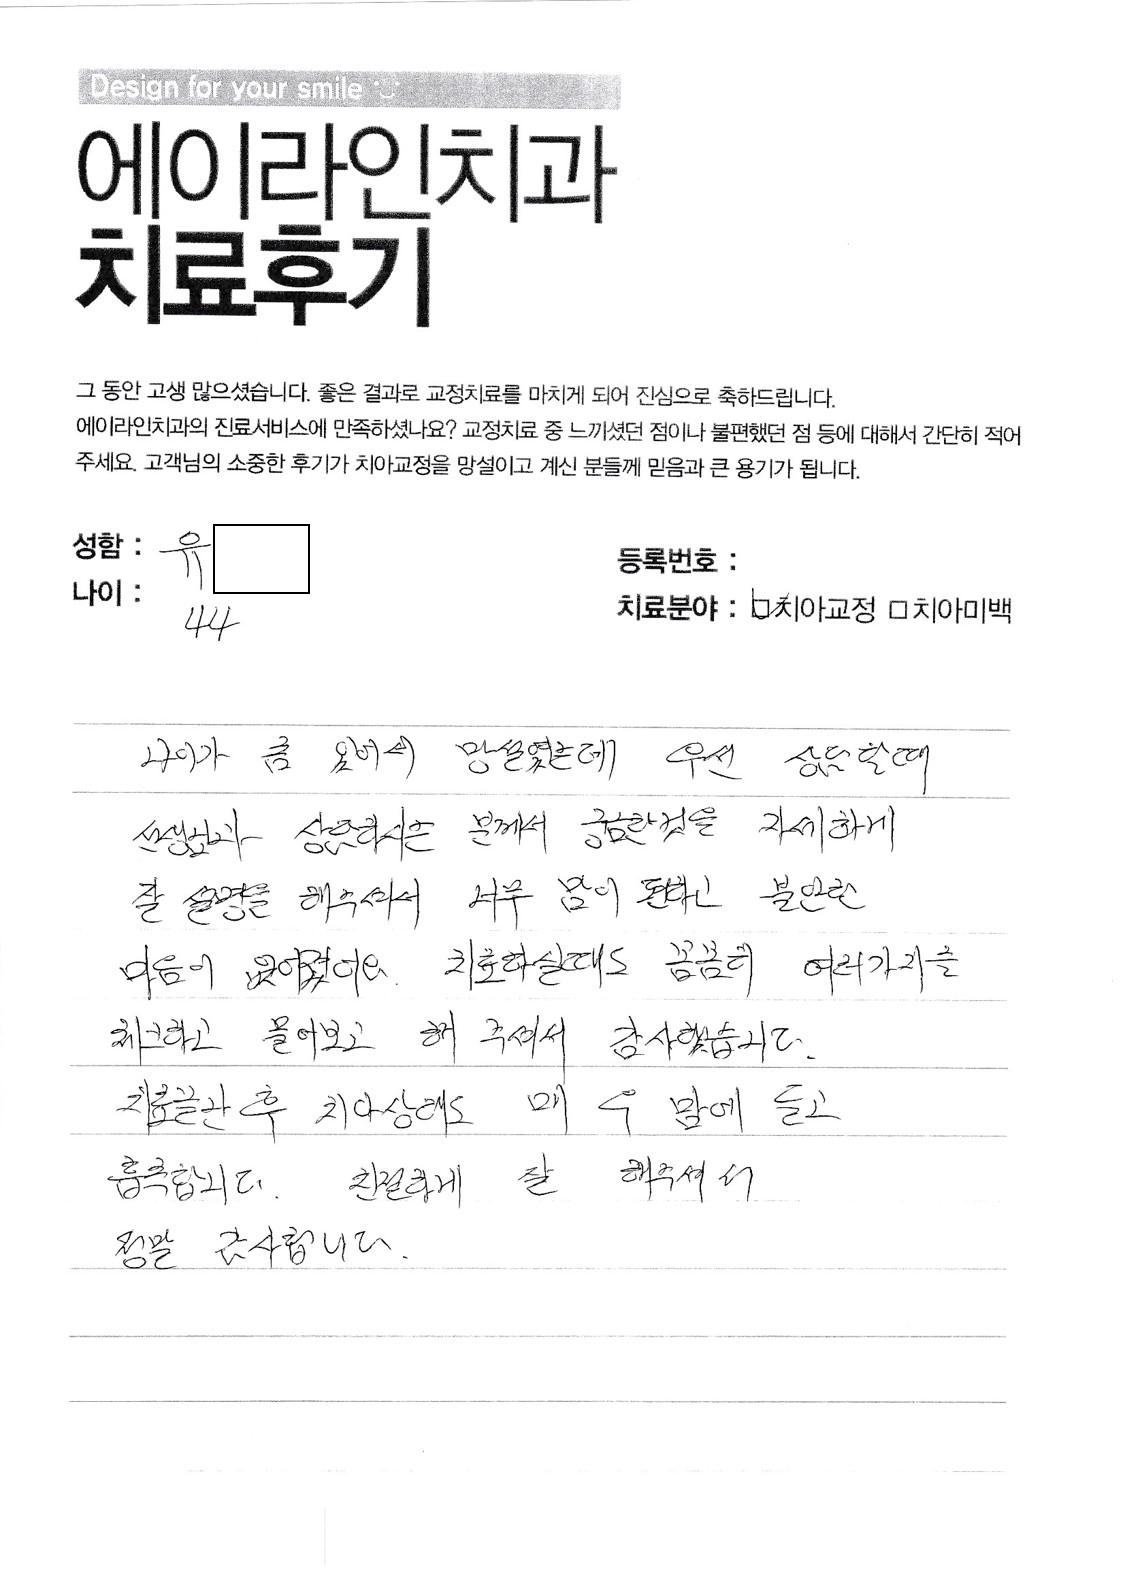 Design for your smile
에이라인치과
치료후기
그 동안 고생 많으셨습니다. 좋은 결과로 교정치료를 마치게 되어 진심으로 축하드립니다.
에이라인치과의 진료서비스에 만족하셨나요? 교정치료 중 느끼셨던 점이나 불편했던 점 등에 대해서 간단히 적어
주세요. 고객님의 소중한 후기가 치아교정을 망설이고 계신 분들께 믿음과 큰 용기가 됩니다.
성함 : 유
등록번호 :
나이 : 44
치료분야 : ☑치아교정 □치아미백
나이가 좀 있어서 망설였는데 우선 상담할때
선생님과 상담하시는 분께서 궁금한것을 자세하게
잘 설명을 해주셔서 너무 맘이 편하고 불안한
마음이 없어졌어요. 치료하실때도 꼼꼼히 여러가지를
체크하고 물어보고 해 주셔서 감사했습니다.
치료끝난 후 치아상태도 매우 맘에 들고
흡족합니다. 친절하게 잘 해주셔서
정말 감사합니다.